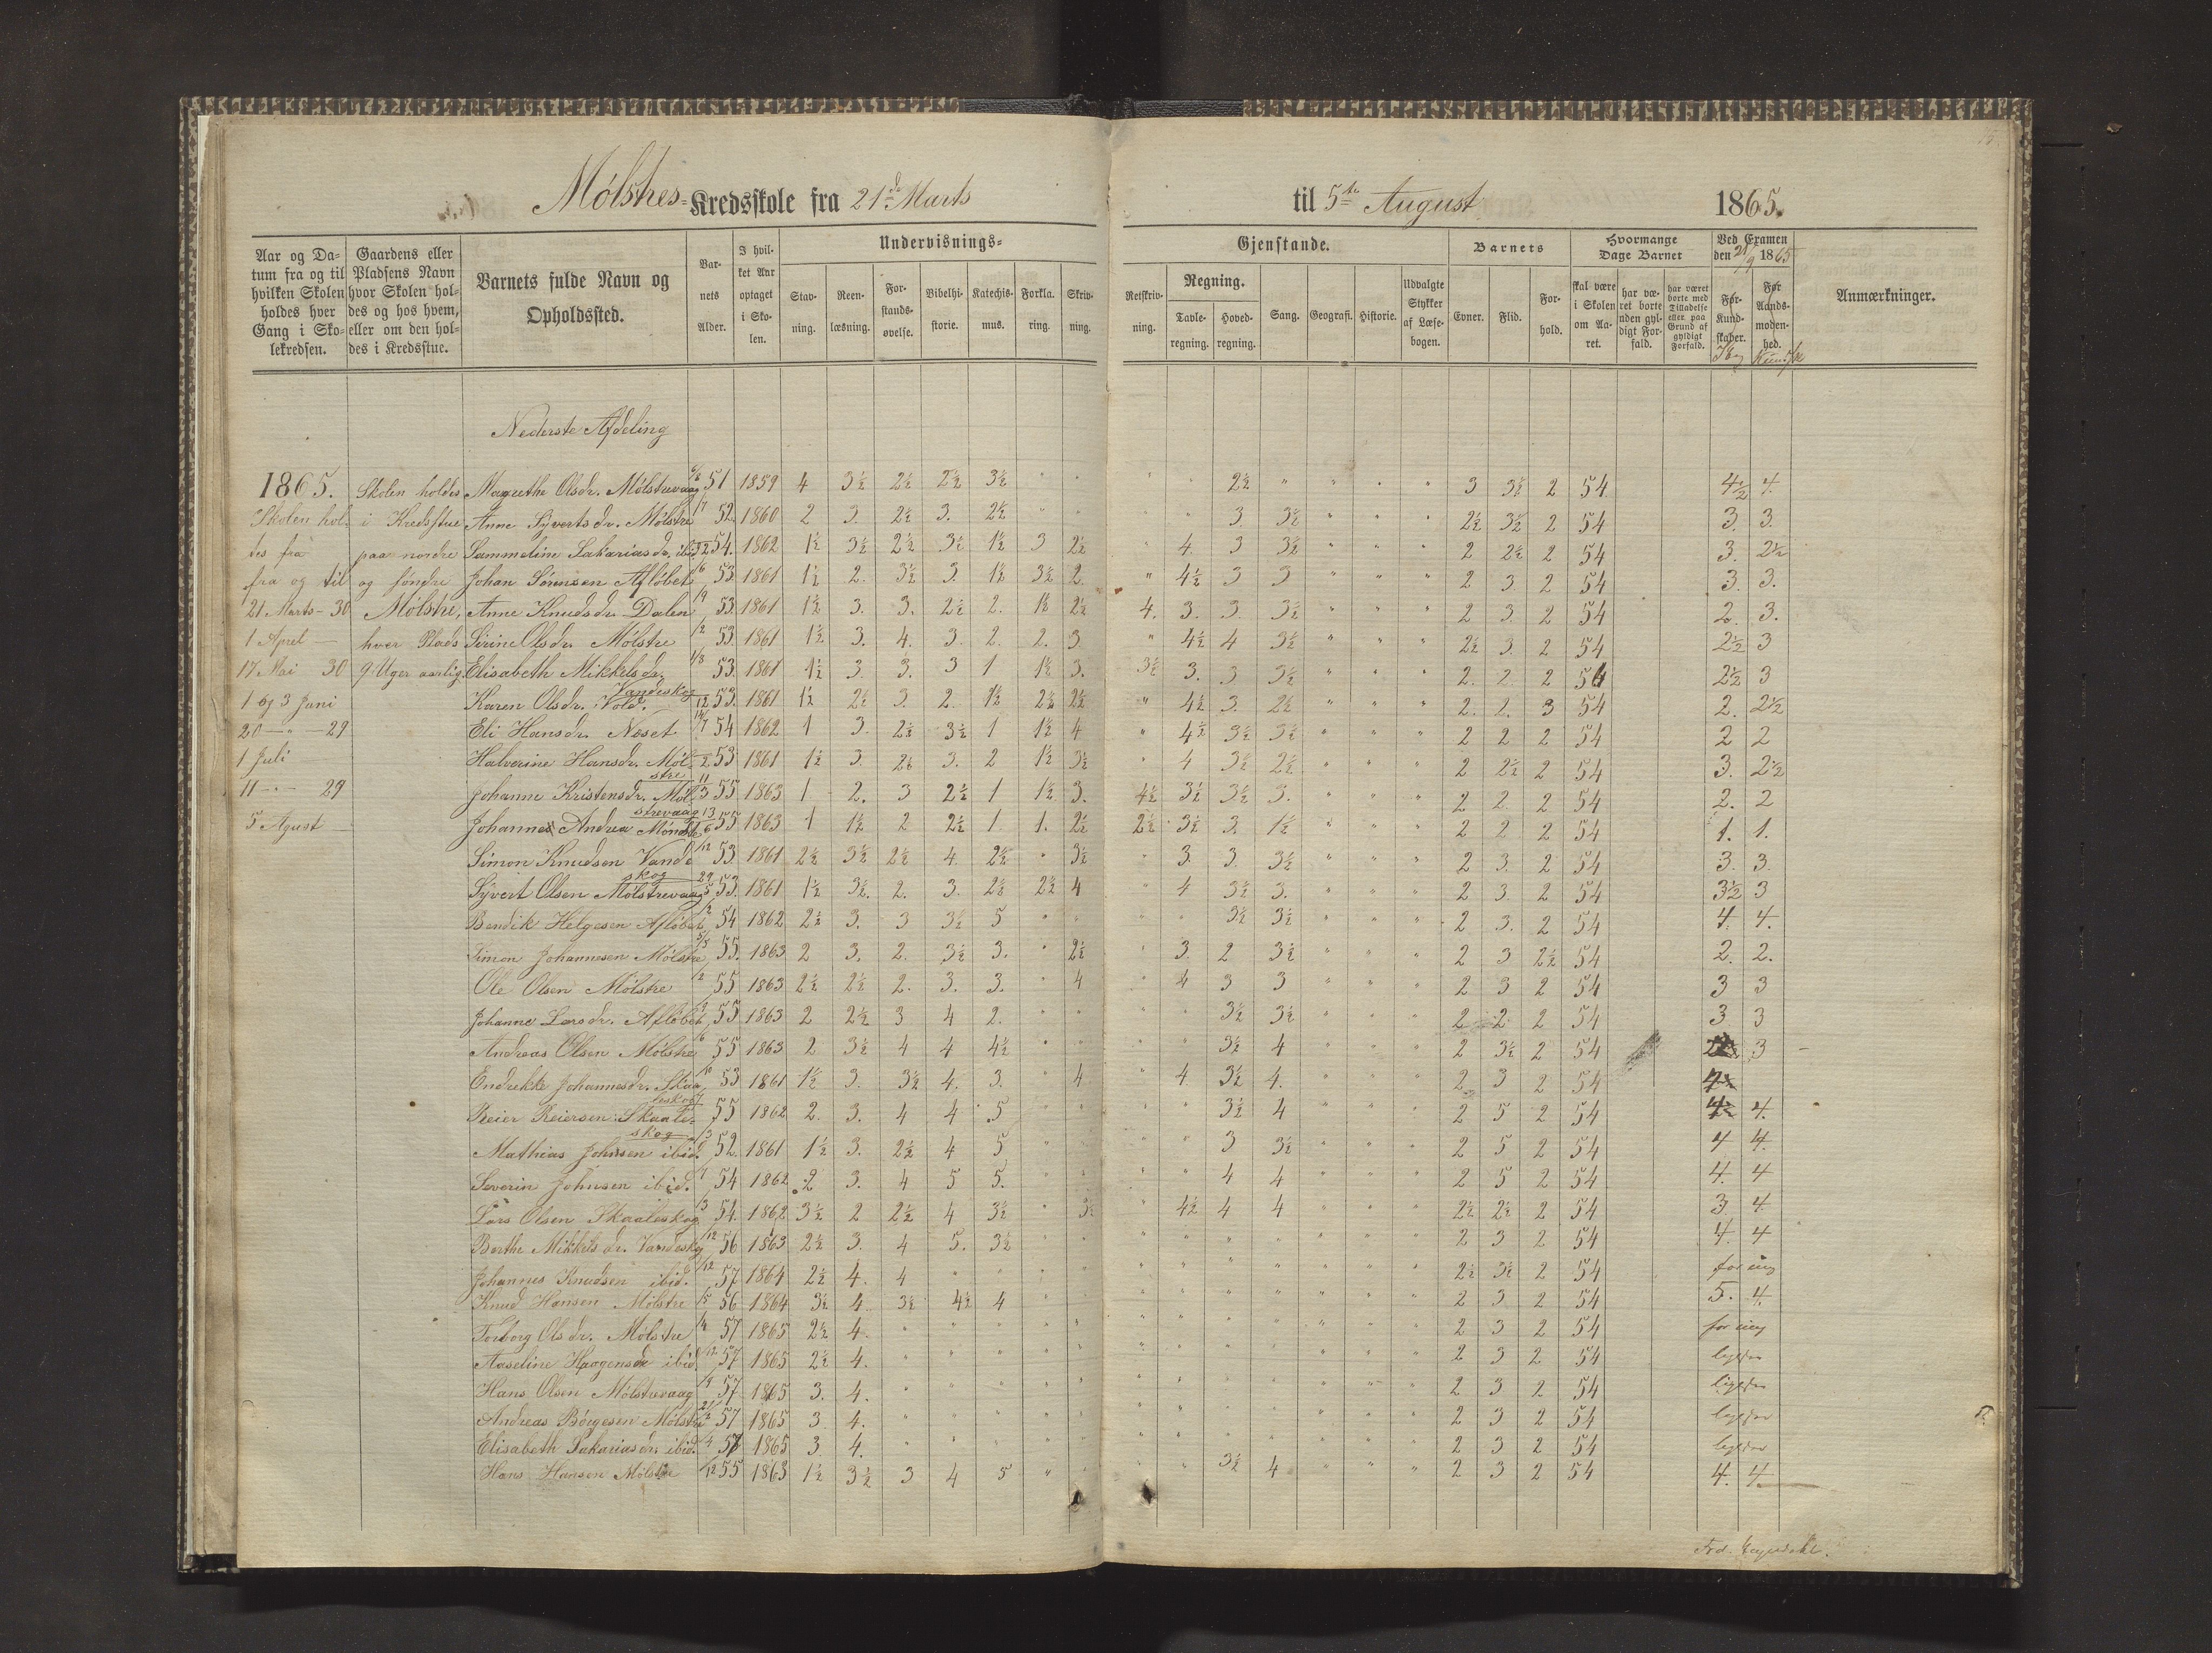 Mølstres- Kredsskole fra 21de Marts til 5te August 1865.
Aar og Datum fra og til hvilken Skolen holdes hver Gang i Skolekredsen.
Gaardens eller Pladsens Navn hvor Skolen holdes og hos hvem, eller om den holdes i Kredsstue.
Barnets fulde Navn og Opholdssted.
Barnets Alder.
I hvilket Aar optaget i Skolen.
Undervisnings-
Stavning. Reenlæsning. Forstandsøvelse. Bibelhistorie. Katechismus. Forklaring. Skrivning.
Gjenstande.
Retskrivning. Regning. Tavleregning. Hovedregning. Sang. Geografi. Historie. Udvalgte Stykker af Læsebogen.
Barnets
Evner. Flid. Forhold.
Hvormange Dage Barnet
skal være i Skolen om Aaret. har været borte uden gyldigt Forfald. har været borte med Tilladelse eller paa Grund af gyldigt Forfald.
Ved Examen den 21/9 1865
For Kundskaber. For Aandsmodenhed.
Anmærkninger.
Nederste Afdeling
1865. Skolen holdes Magrethe Olsdr. Mølstrevaag 51 1859 4 3½ 2½ 2½ 3½ " " " " 2½ " " " " 3 3½ 2 54 4½ 4.
Skolen hol- i Kredsstue Anne Syvertsdr. Mølstre 52. 1860 2 3. 2½ 3. 2½ " " " " 3. 3½ " " " 2½ 3½ 2 54 3. 3.
tes fra paa nordre Sammeline Sakariasdr. ibid 54. 1862 1½ 3½ 2½ 3½ 1½ 3 2½ " 4. 3 3½ " " " 2 2½ 2 54 3. 2½
fra og til og søndre Johan Sørensen Afløbet 53. 1861 1½ 2. 3½ 3. 1½ 3½ 2. " 4½ 3 3 " " " 2 3. 2 54 3. 3.
21 Marts - 30 Mølstre, Anne Knudsdr. Dalen 53. 1861 1½ 3. 3. 2½ 2. 1½ 2½ 4. 3. 3. 3½ " " " 2 3. 2 54 2. 3.
1 April — hver Plads Sirine Olsdr. Mølstre 53. 1861 1½ 3. 4. 3. 2. 2. 3 " 4½ 4 3½ " " " 2½ 3. 2 54 2½ 3
17 Mai 30 9 Uger aarlig Elisabeth Mikkelsdr. Vandeskog 53. 1861 1½ 3. 3. 3 1 1½ 3. 3½ 3. 3 3½ " " " 2. 2. 2 54 2½ 3
1 og 3 Juni Karen Olsdr. Vold. 53. 1861 1½ 2½ 3. 2. 1½ 2½ 2½ " 4½ 3. 2½ " " " 2. 2. 3 54 2. 2½
20 — " — 29 Eli Hansdr. Næset 54 1862 1 3. 2½ 3½ 1 1½ 4 " 4½ 3½ 3½ " " " 2 2 2 54 2 2
1 Juli Halverine Hansdr. Mølstre 53 1861 1½ 3. 2½ 3. 2 1½ 3½ " 4 3½ 2½ " " " 2 2½ 2 54 3. 2½
11 — " — 29 Johanne Kristensdr. Mølstrevaag 55 1863 1 2. 3 2½ 1 1½ 3. 4½ 3½ 3½ 3. " " " 2 2. 2 54 2. 2
5 Agust — Johannes Andrea 55 1863 1 1½ 2 2½ 1. 1. 2½ 2½ 3½ 3. 1½ " " " 2 2 2 54 1. 1.
Simon Knudsen Vandeskog 53 1861 2½ 3½ 2½ 4. 2½ " 3½ " 3. 3. 3½ " " " 2 3. 2 54 3. 3.
Syvert Olsen Mølstrevaag 53. 1861 1½ 3½. 2. 3. 2½ 2½ 4 " 4 3½ 3. " " " 2 3. 2 54 3½ 3
Bendik Helgesen Afløbet 54 1862 2½ 3. 3 3½ 5 " " " " 3½ 3½ " " " 2 3. 2 54 4. 4.
Simon Johannesen Mølstre 55. 1863 2 3. 2. 3½ 3. " 2½ " 3. 2 3½ " " " 2 3 2½ 54 2. 2.
Ole Olsen Mølstre 55 1863 2½ 2½ 2. 3. 3. " 4 " 4 3 3 " " " 2 3 2 54 3 3
Johanne Larsdr. Afløbet 55 1863 2 2½ 3 4 2. " " " " 3½ 3½ " " " 2 2 2 54 3 3
Andreas Olsen Mølstre 55 1863 2 3½ 4 4 4½ " " " " 3½ 4 " " " 2 3½ 2 54 3
Endrekke Johannesdr. Skaaleskog 53 1861 1½ 3. 3½ 4. 3. " 4 " 4 3½ 4. " " " 2 3 2 54
Reier Reiersen Skaaleskog 55 1862 2. 3. 4 4 5 " " " " 3½ 4 " " " 2 5 2 54 4½ 4.
Mathias Johnsen ibid. 52. 1861 1½ 3. 2½ 4 5 " " " " 3 3½ " " " 2 5 2 54 4 4.
Severin Johnsen ibid. 54 1862 2 3. 4 5 5. " " " " 4 4 " " " 2 5 2 54 4. 4
Lars Olsen Skaaleskog 54. 1862 3½ 2 2½ 4 3½ " 3½ " 4½ 4 4 " " " 2½ 2½ 2 54 3. 4.
Berthe Mikkelsdr. Vandeskog 56 1863 2½ 3. 4 5. 3½ " " " " " " " " " 2 3 2 54 4. 4
Johannes Knudsen ibid. 57 1864 2½ 4. 4 " " " " " " " " " " " 2½ 3½ 2 54 for ung
Knud Hansen Mølstre 56 1864 3½ 4. 3½ 4½ 4 " " " " " " " " " 2 3 2 54 5. 4.
Torborg Olsdr. Mølstre 57 1865 2½ 4. " " " " " " " " " " " " 2 3 2 54 for ung
Aaseline Haagensdr ibid. 57 1865 2½ 4. " " " " " " " " " " " " 2 3 2 54 ligesaa
Hans Olsen Mølstrevaag 57 1865 3. 4. " " " " " " " " " " " " 2 3 2 54 ligesaa
Andreas Børgesen Mølstre 57 1865 3 4. " " " " " " " " " " " " 2 3 2 54 ligesaa
Elisabeth Sakariasdr. ibid. 57 1865 3 4. " " " " " " " " " " " " 2 3 2 54 ligesaa
Hans Hansen Mølstre 55 1863 1½ 3½ 3 4 5 " " " " 3½ 4 " " " 2 3 2 54 4. 4.